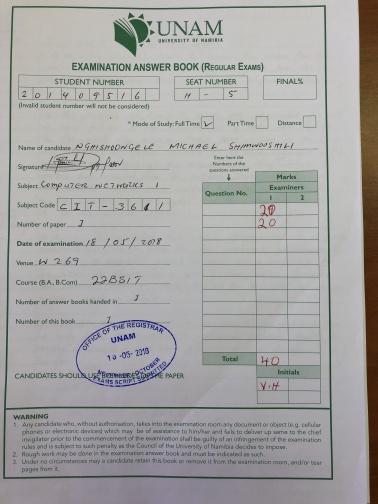 UNAM
UNIVERSITY OF NAMIBIA
EXAMINATION ANSWER BOOK (REGULAR EXAMS)
STUDENT NUMBER SEAT NUMBER FINAL%
201409516 H - 5
(Invalid student number will not be considered)
* Mode of Study: Full Time ✓ Part Time Distance
Name of candidate NGHISHOONGELE MICHAEL SHIMWOOSHILI
Signature
Subject COMPUTER NETWORKS 1
Subject Code CIT-3611
Number of paper 1
Date of examination 18/05/2018
Venue W269
Course (B.A., B.Com) 22BSIT
Number of answer books handed in 1
Number of this book 1
Enter here the Numbers of the questions answered
Question No.
Marks
Examiners
1 2
20
20
Total 40
Initials
V.H
OFFICE OF THE REGISTRAR
UNAM
-05-2018
EXAMS SCRIPT SUBMITTED
CANDIDATES SHOULD USE THE PAPER
WARNING
1. Any candidate who, without authorisation, takes into the examination room any document or object (e.g. cellular
phones or electronic devices) which may be of assistance to him/her and fails to deliver up same to the chief
invigilator prior to the commencement of the examination shall be guilty of an infringement of the examination
rules and is subject to such penalty as the Council of the University of Namibia decides to impose.
2. Rough work may be done in the examination answer book and must be indicated as such.
3. Under no circumstances may a candidate retain this book or remove it from the examination room, and/or tear
pages from it.